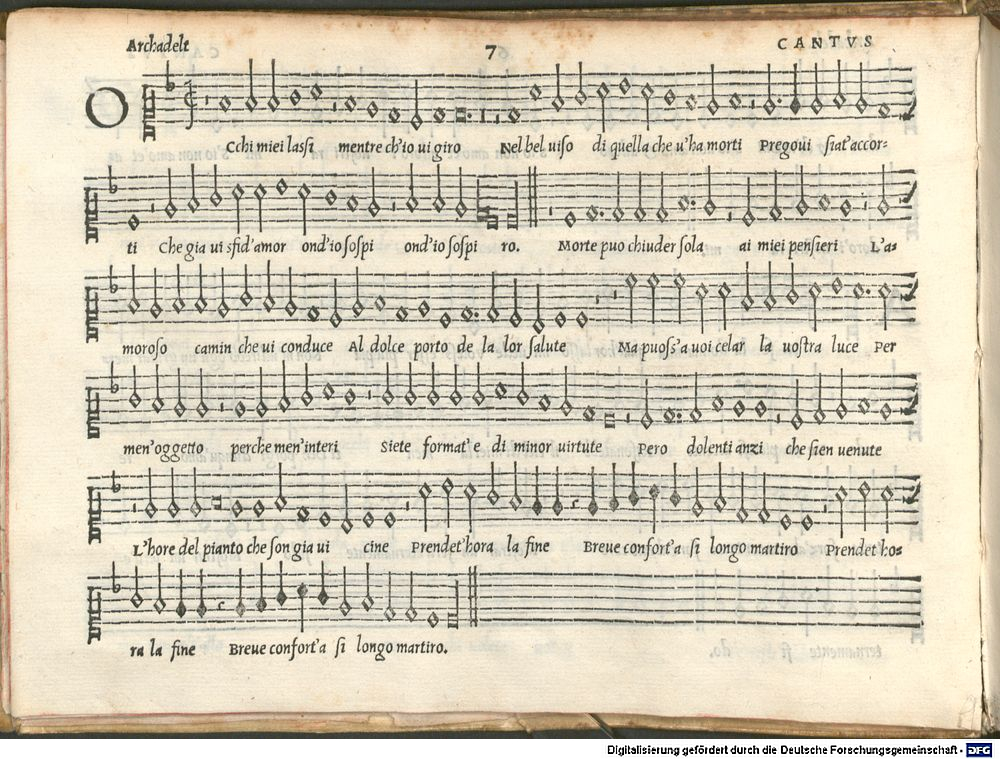 Archadelt 7 CANTVS
OCchi miei lassi mentre ch'io ui giro Nel bel uiso di quella che u'ha morti Pregoui siat'accor-
ti Che gia ui sfid'amor ond'io sospi ond'io sospi ro. Morte puo chiuder sola ai miei pensieri L'a-
moroso camin che ui conduce Al dolce porto de la lor salute Ma puoss'a uoi celar la uostra luce Per
men'oggetto perche men'interi Siete format'e di minor uirtute Pero dolenti anzi che sien uenute
L'hore del pianto che son gia ui cine Prendet'hora la fine Breue confort'a si longo martiro Prendet'ho-
ra la fine Breue confort'a si longo martiro.
Digitalisierung gefördert durch die Deutsche Forschungsgemeinschaft - DFG